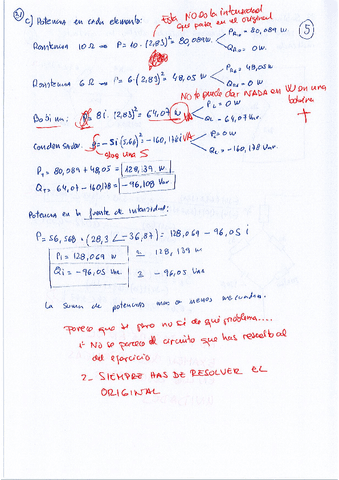 c) Potencia en cada elemento:
Esta NO es la intensidad
que pasa en el original
5
Resistencia 10 Ω → P = 10 · (2,83)² = 80,089 w.
P = 80,089 w.
Q = 0 w.
Resistencia 6 Ω → P = 6 · (2,83)² = 48,05 w
P = 48,05 w
Q = 0 w
No se puede dar NADA en W en una
bobina
Bobina: = 8i · (2,83)² = 64,07 w
P = 0 w
Q = 64,07 Var.
Condensador: = -5i (5,66)² = -160,178 i VA
P = 0 w
Q = -160,178 Var
S
P = 80,089 + 48,05 = 128,139 w
Q = 64,07 - 160,178 = -96,108 Var
Potencia en la fuente de intensidad:
P = 56,568 · (28,3 ∠ -36,87) = 128,069 - 96,05 i
Pi = 128,069 w ≃ 128,139 w
Qi = -96,05 Var ≃ -96,05 Var
La suma de potencias más o menos
Parece que sí pero no sé de qué problema....
1- No se parece el circuito que has resuelto al
del ejercicio
2- SIEMPRE HAS DE RESOLVER EL
ORIGINAL